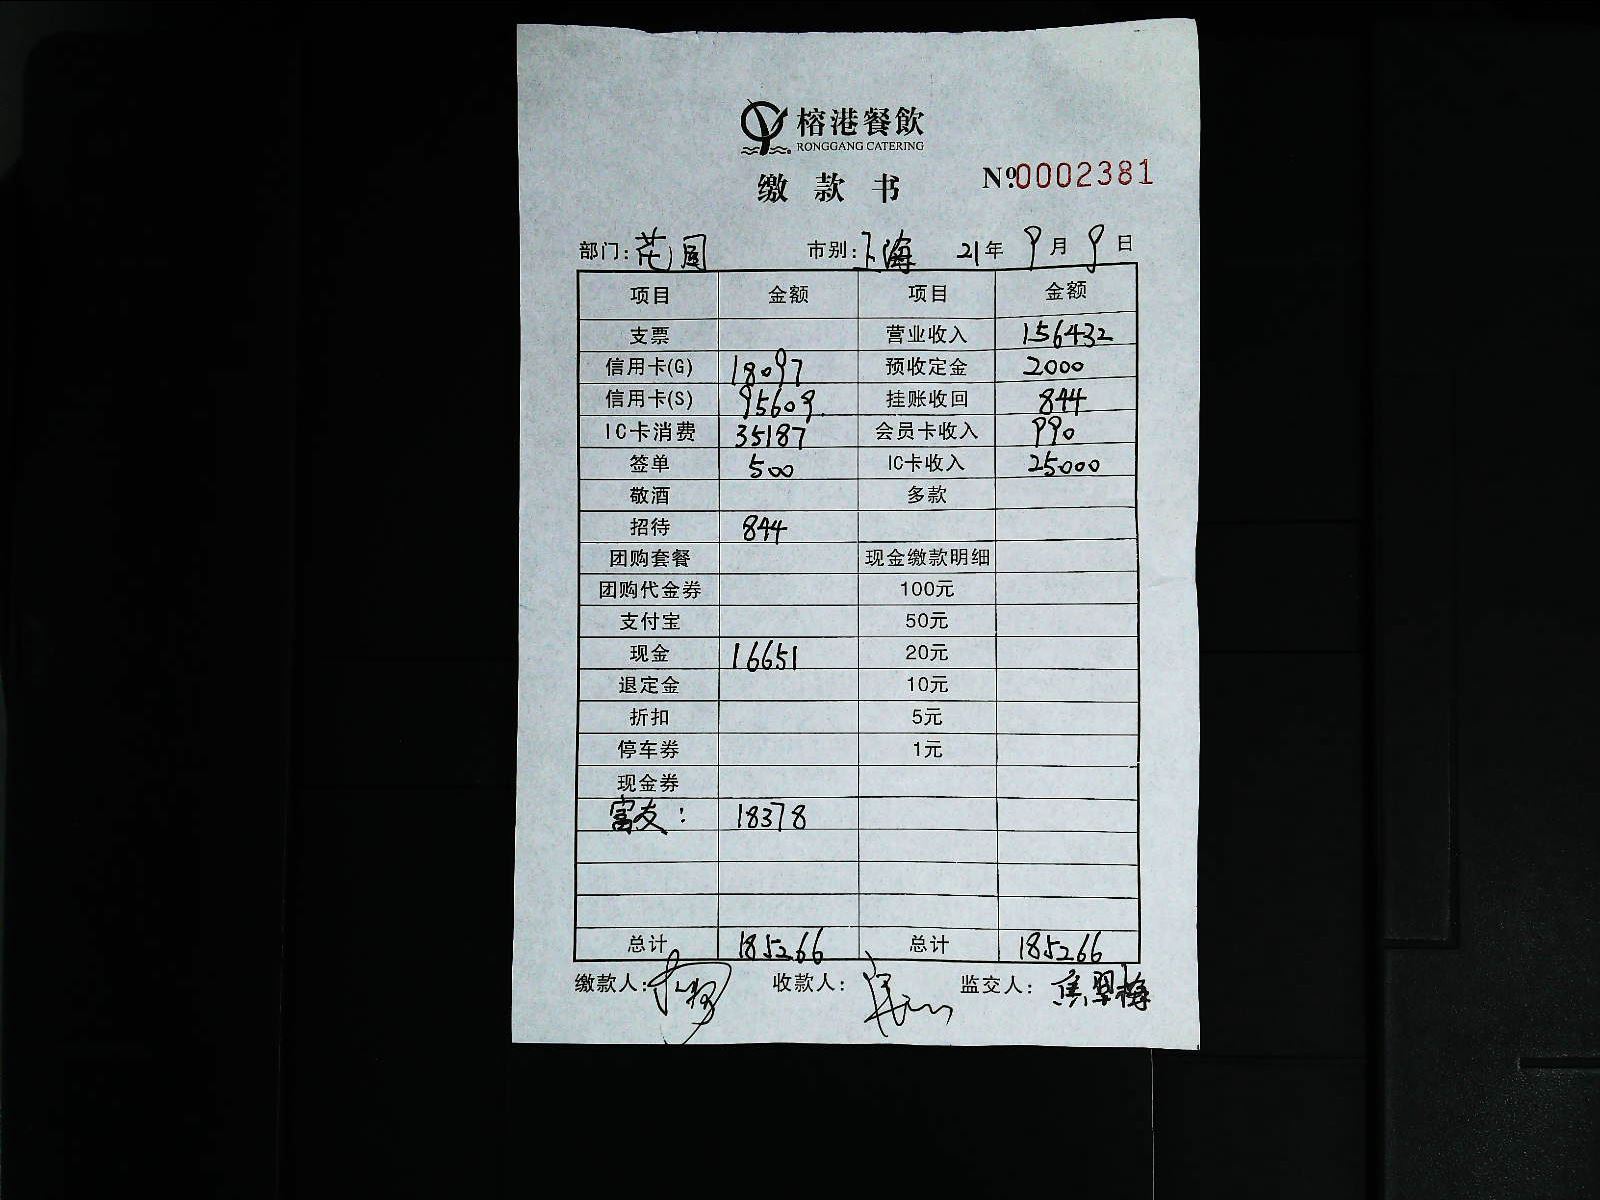 榕港餐飲
RONGGANG CATERING
缴款书 №0002381
部门:花园 市别:上海 21年 9月 9日
项目 金额 项目 金额
支票 营业收入 156432
信用卡(G) 18097 预收定金 2000
信用卡(S) 95609. 挂账收回 844
IC卡消费 35187 会员卡收入 990
签单 500 IC卡收入 25000
敬酒 多款
招待 844
团购套餐 现金缴款明细
团购代金券 100元
支付宝 50元
现金 16651 20元
退定金 10元
折扣 5元
停车券 1元
现金券
富友: 18378
总计 185266 总计 185266
缴款人: 收款人: 监交人:焦翠梅